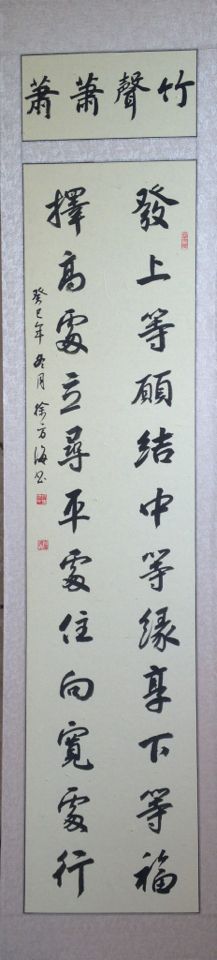 竹聲蕭蕭
發上等願結中等緣享下等福
擇高處立尋平處住向寬處行
癸巳年冬月徐方海書